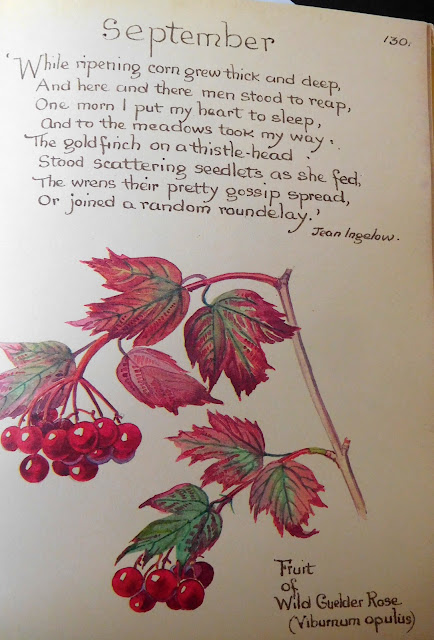 September
130.
'While ripening corn grew thick and deep,
And here and there men stood to reap,
One morn I put my heart to sleep,
And to the meadows took my way.
The goldfinch on a thistle-head
Stood scattering seedlets as she fed,
The wrens their pretty gossip spread,
Or joined a random roundelay.'
Jean Ingelow.
Fruit
of
Wild Guelder Rose
(Viburnum opulus)